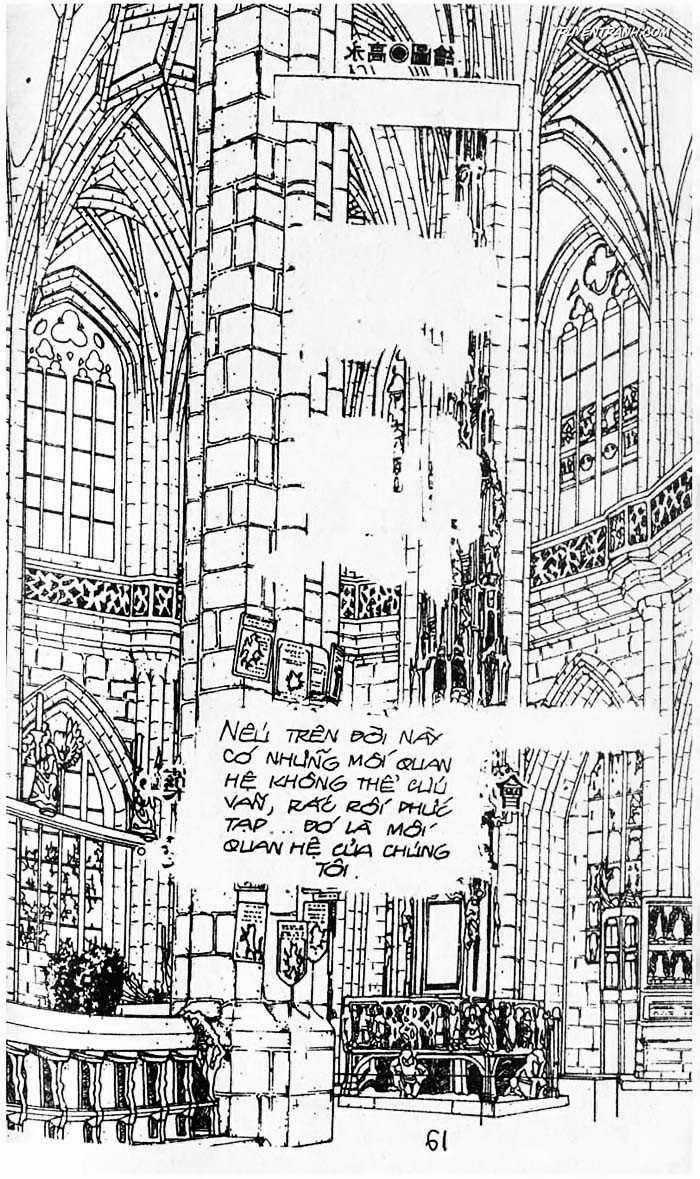 TRUYENTRANH.COM
繪圖◉高永
NẾU TRÊN ĐỜI NÀY
CÓ NHỮNG MỐI QUAN
HỆ KHÔNG THỂ CỨU
VAN, RẮC RỐI PHỨC
TẠP... ĐÓ LÀ MỐI
QUAN HỆ CỦA CHÚNG
TÔI.
會
61